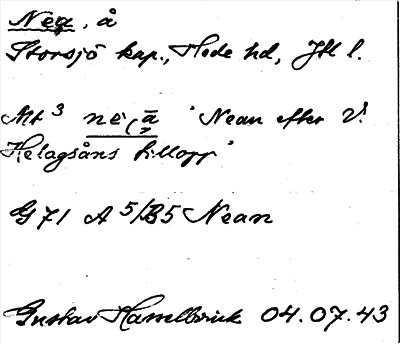 Nea, å
Storsjö kap., Hede hd, Jtl l.
Mt 3 ne`(ā "Nean efter V.
Helagsåns tillopp"
G 71 A 5/B5 Nean
Gustav Hasselbrink 04.07.43